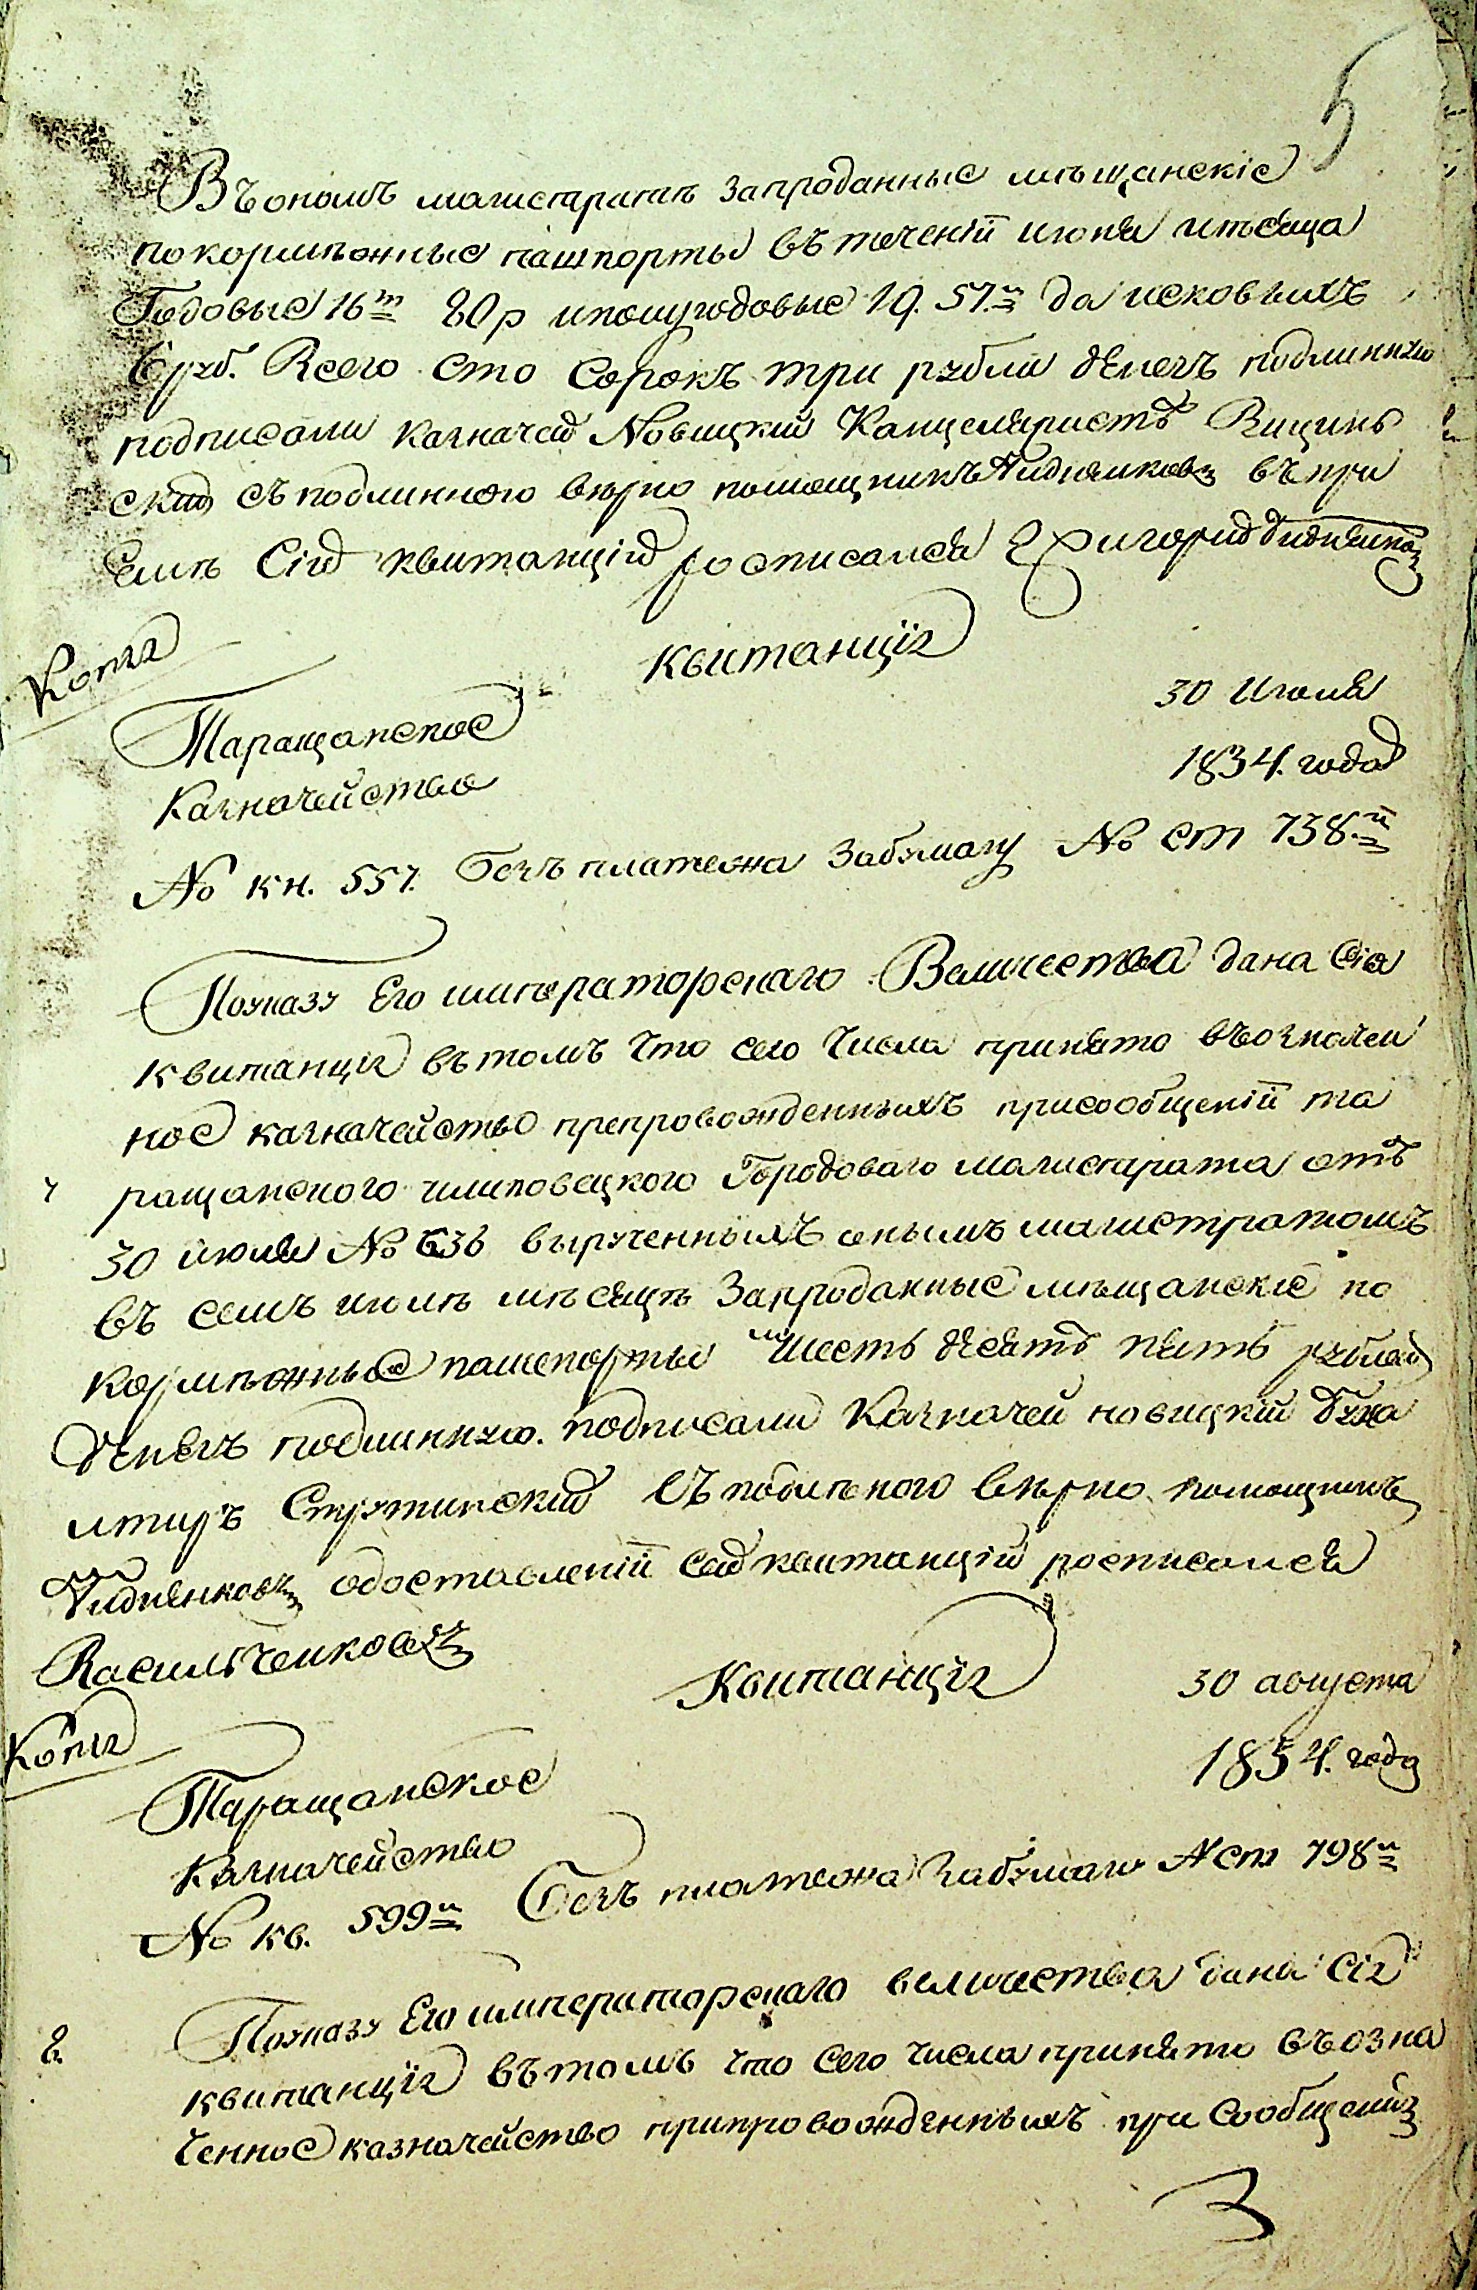 5
Въ ономъ магистратѣ запроданные мѣщанскіе
покормѣжные пашпорты въ теченіи июня мѣсяца
Годовые 16т 80 р иполугодовые 19. 57.и да исковыхъ
6 руб. Всего сто сорокъ три рубли денегъ подлинную
подписали казначей Новицкій Канцеляристъ Вицинь
скій съ подлинною вѣрно помощникъ въ при
емѣ сій квитанціи росписался Григорий
Копия
квитанція
Таращанское
30 Июля
Казначейство
1834. года
№ кн. 557. безъ платежа забумагу № ст 738.й
По указу Его императорскаго Величества дана сія
квитанция въ томъ что сего числа принято въ означен
ное казначейство препровожденныхъ присообщеніи та
ращанского Городоваго магистрата отъ
30 июля № 636 вырученныхъ онымъ магистратомъ
въ семъ июлѣ мѣсяцѣ запроданные мѣщанскіе по
кормѣжные пашпорты шесть десятъ пять рублей
денегъ подлинную. подписали Казначей новицкій бухга
лтиръ Струтинский Съ подлѣного вѣрно помощникъ
одоставленіи сей квитанціи росписался
Василченковъ
Копия
Квитанція
30 августа
Таращанское
1834. года
Казначейство
№ кв. 599и Безъ платежа забумагу № ст 798и
По указу Его императорскаго величества дана сія
2
квитанція въ томъ что сего числа принято въ озна
ченное казначейство припровожденныхъ при сообщеніи
3